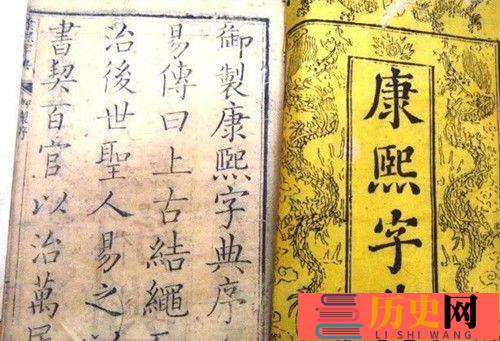 康熙字典
御製康熙字典序
易傳曰上古結繩
治後世聖人易之以
書契百官以治萬民
御製序
历史网
LI SHI WANG